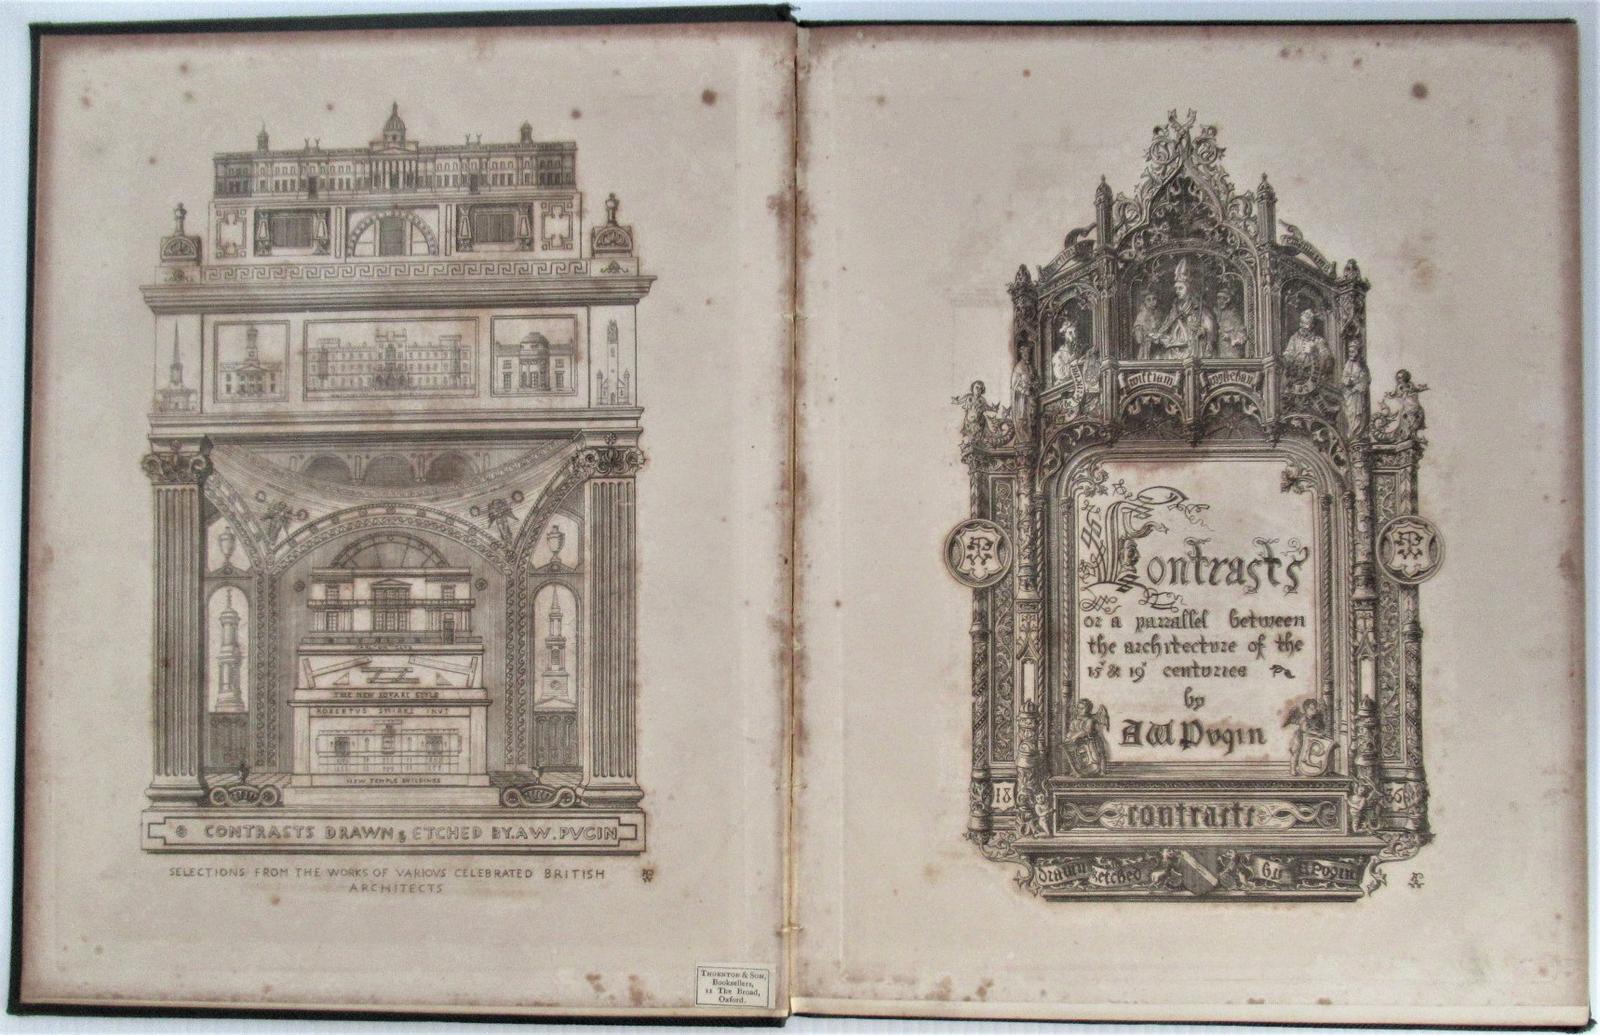 THE NEW SQUARE STYLE
ROBERTUS SMIRKE INVT
NEW TEMPLE BUILDINGS
CONTRASTS DRAWN & ETCHED BY. A W. PVGIN
SELECTIONS FROM THE WORKS OF VARIOVS CELEBRATED BRITISH
ARCHITECTS
THORNTON & SON,
Booksellers,
11 The Broad,
Oxford.
william
Contrasts
or a parrallel between
the architecture of the
15 & 19 centuries
by
A W Pugin
18 36
contrasts
drawn & etched by A Pugin